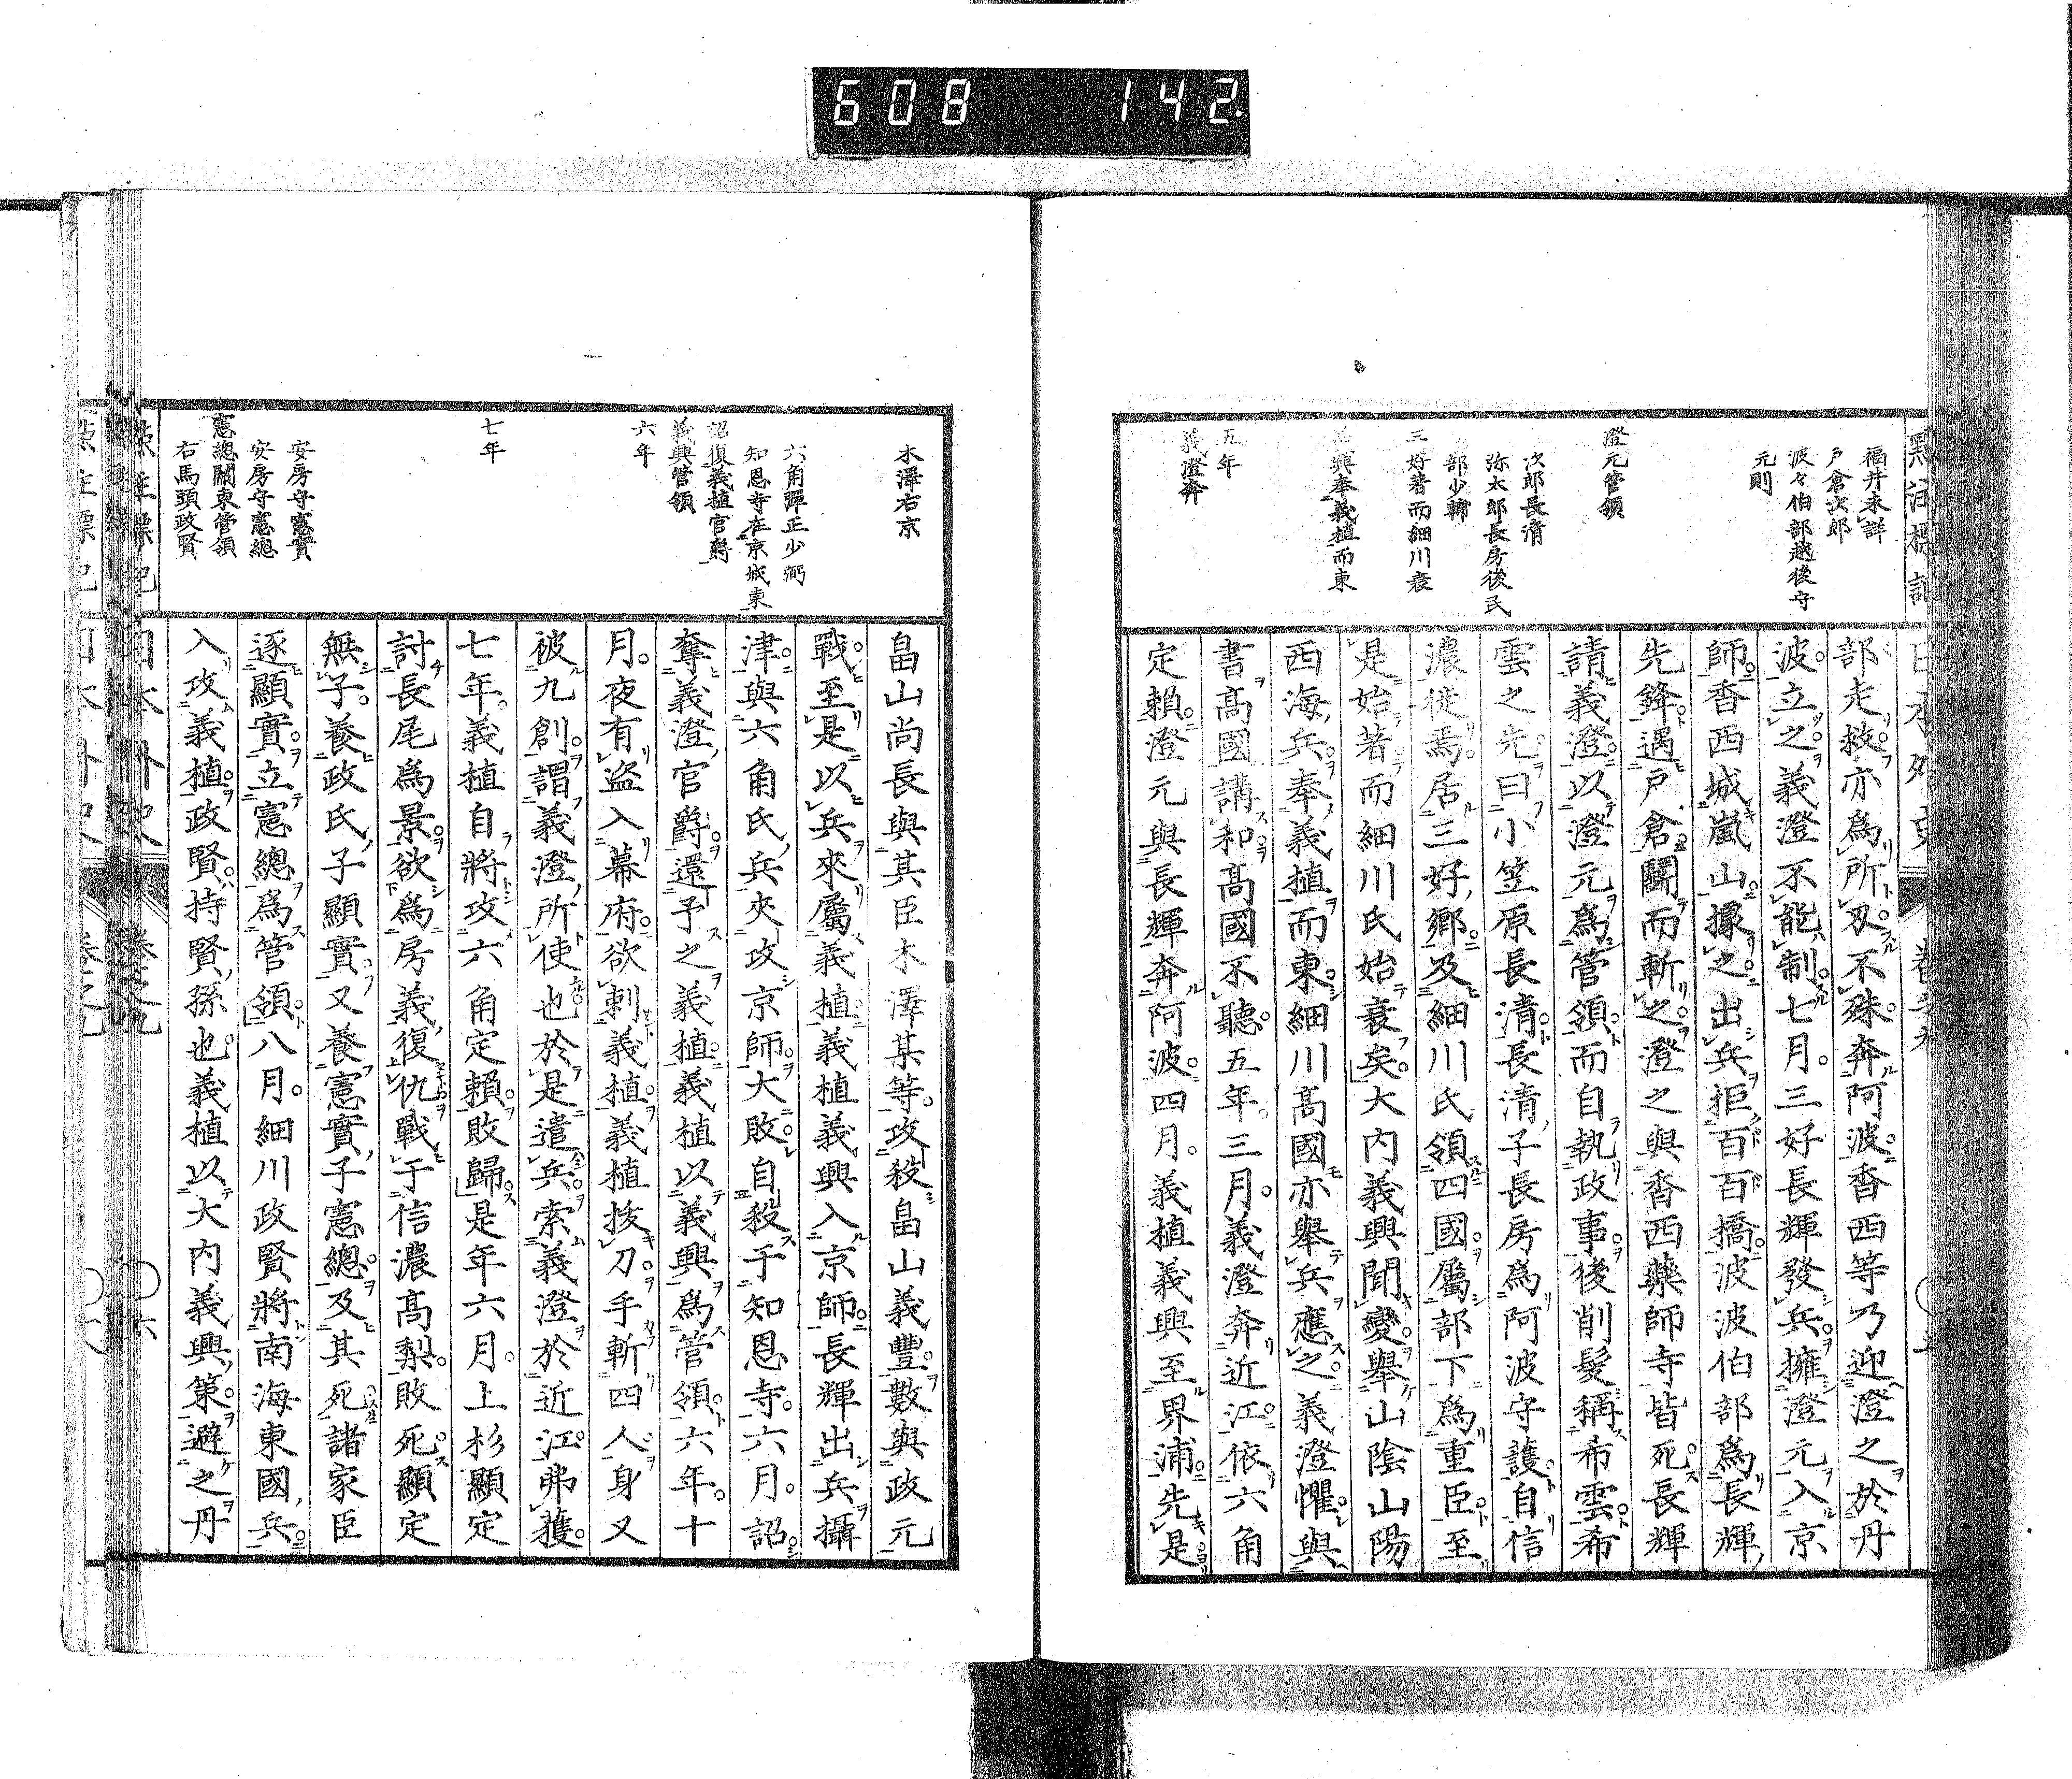 608 142
福井未詳
戸倉次郎
波々伯部越後守
元則
澄元管領
次郎長清
弥太郎長房後民
部少輔
三好著而細川衰
義興奉義植而東
五年
義澄奔
部走救亦為所刄不殊奔阿波香西等乃迎澄之於丹
波立之義澄不能制七月三好長輝發兵擁澄元入京
師香西城嵐山據之出兵拒百百橋波波伯部為長輝
先鋒遇戸倉鬭而斬之澄之與香西藥師寺皆死長輝
請義澄以澄元為管領而自執政事後削髮稱希雲希
雲之先曰小笠原長清長清子長房為阿波守護自信
濃徙焉居三好鄉及細川氏領四國屬部下為重臣至
是始著而細川氏始衰矣大內義興聞變舉山陰山陽
西海兵奉義植而東細川髙國亦舉兵應之義澄懼與
書髙國講和髙國不聽五年三月義澄奔近江依六角
定賴澄元與長輝奔阿波四月義植義興至界浦先是
木澤右京
六角彈正少弼
知恩寺在京城東
詔復義植官爵
義興管領
六年
七年
安房守憲實
安房守憲總
憲總關東管領
右馬頭政賢
畠山尚長與其臣木澤某等攻殺畠山義豐數與政元
戰至是以兵來屬義植義植義興入京師長輝出兵攝
津與六角氏兵夾攻京師大敗自殺于知恩寺六月詔
奪義澄官爵還予之義植義植以義興為管領六年十
月夜有盗入幕府欲刺義植義植拔刀手斬四人身又
被九創謂義澄所使也於是遣兵索義澄於近江弗獲
七年義植自將攻六角定賴敗歸是年六月上杉顯定
討長尾為景欲為房義復仇戰于信濃髙梨敗死顯定
無子養政氏子顯實又養憲實子憲總及其死諸家臣
逐顯實立憲總為管領八月細川政賢將南海東國兵
入攻義植政賢持賢孫也義植以大內義興策避之丹